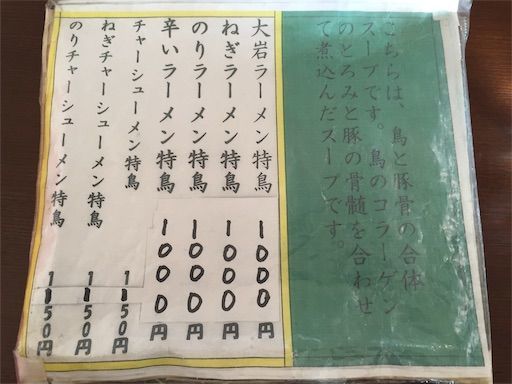 こちらは、鳥と豚骨の合体
スープです。鳥のコラーゲン
のとろみと豚の骨髄を合わせ
て煮込んだスープです。
大岩ラーメン特鳥 1000円
ねぎラーメン特鳥 1000円
のりラーメン特鳥 1000円
辛いラーメン特鳥 1000円
チャーシューメン特鳥 1150円
ねぎチャーシューメン特鳥 1150円
のりチャーシューメン特鳥 1150円